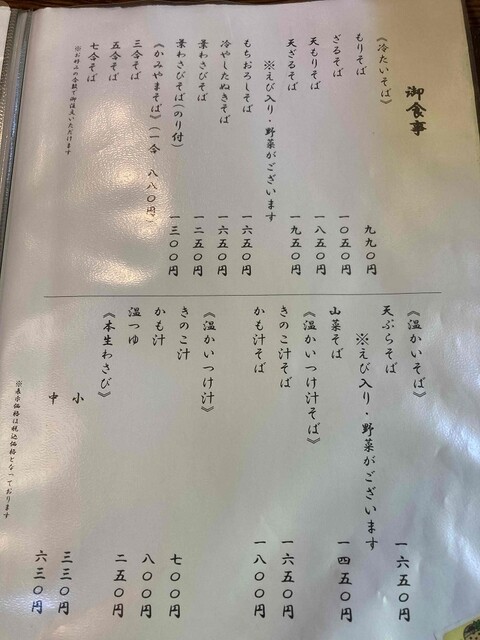 御食事
《冷たいそば》
もりそば 九九〇円
ざるそば 一〇五〇円
天もりそば 一八五〇円
天ざるそば 一九五〇円
※えび入り・野菜がございます
もちおろしそば 一六五〇円
冷やしたぬきそば 一六五〇円
葉わさびそば 一二五〇円
葉わさびそば(のり付) 一三〇〇円
《かみやまそば》(一合 八八〇円)
三合そば
五合そば
七合そば
※お好みの合数で御注文いただけます
《温かいそば》
天ぷらそば 一六五〇円
※えび入り・野菜がございます
山菜そば 一四五〇円
《温かいつけ汁そば》
きのこ汁そば 一六五〇円
かも汁そば 一八〇〇円
《温かいつけ汁》
きのこ汁 七〇〇円
かも汁 八〇〇円
温つゆ 二五〇円
《本生わさび》
小 三三〇円
中 六三〇円
※表示価格は税込価格となっております